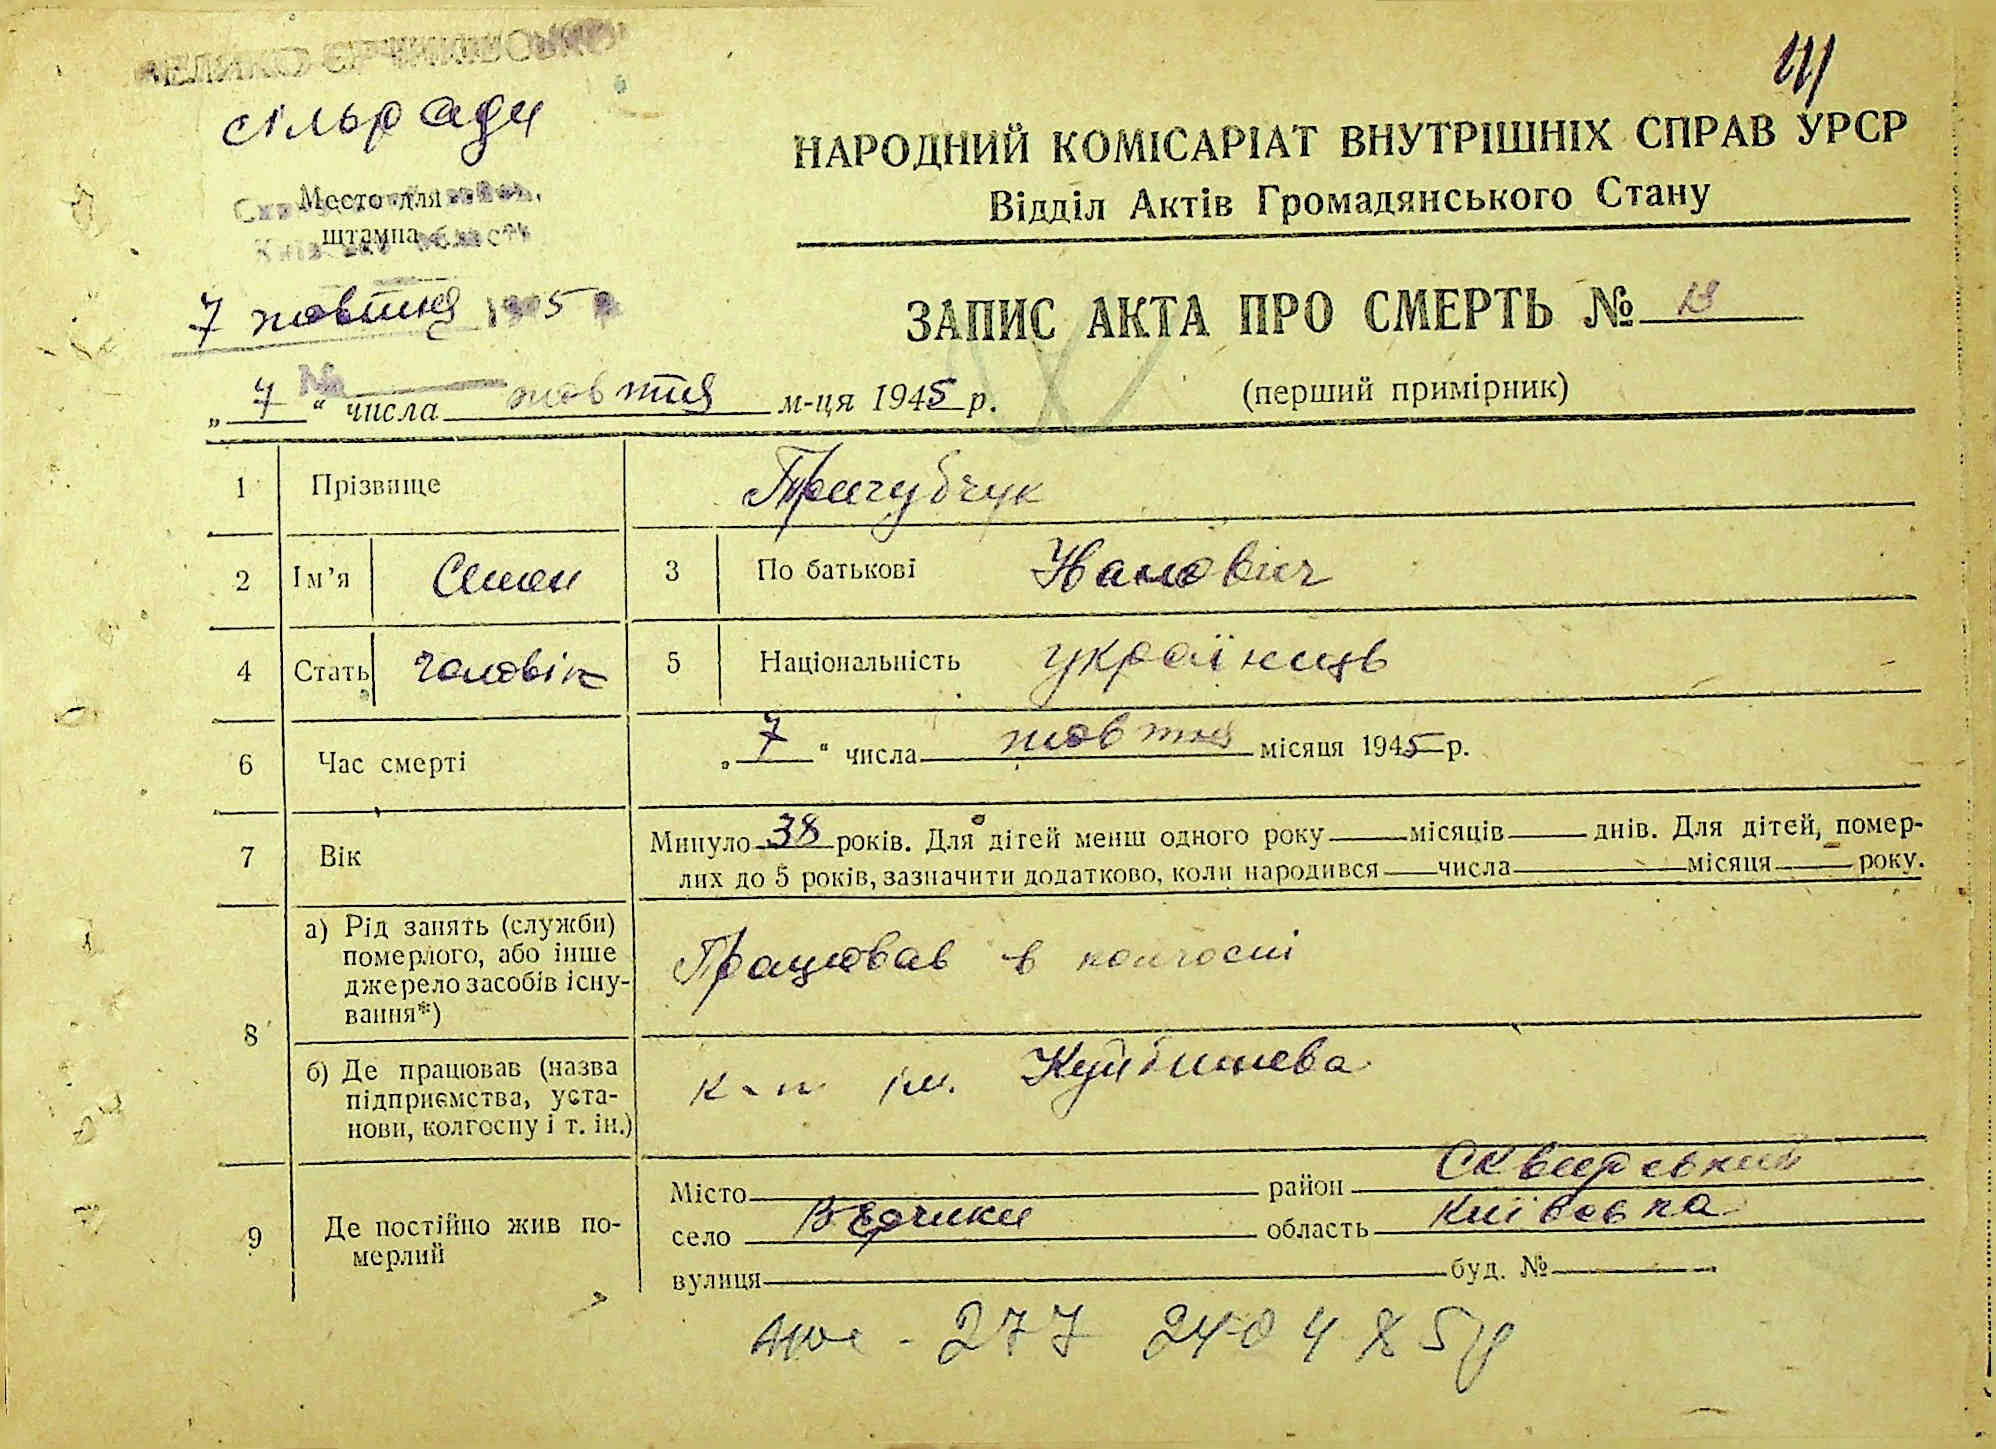 сільради
Место для
штампа
7 жовтня 1945 р
№
НАРОДНИЙ КОМІСАРІАТ ВНУТРІШНІХ СПРАВ УРСР
Відділ Актів Громадянського Стану
ЗАПИС АКТА ПРО СМЕРТЬ № 13
„7“ числа жовтня м-ця 1945 р.
(перший примірник)
1 Прізвище Пригубчук
2 Ім’я Семен 3 По батькові Іванович
4 Стать чоловік 5 Національність українець
6 Час смерті „7“ числа жовтня місяця 1945 р.
7 Вік Минуло 38 років. Для дітей менш одного року місяців днів. Для дітей, помер-
лих до 5 років, зазначити додатково, коли народився числа місяця року.
8 а) Рід занять (служби)
померлого, або інше
джерело засобів існу-
вання*)
Працював в колгоспі
б) Де працював (назва
підприємства, уста-
нови, колгоспу і т. ін.)
к-п ім. Куйбишева
9 Де постійно жив по-
мерлий
Місто район Сквирський
село Вчорики область Київська
вулиця буд. №
277 240485р